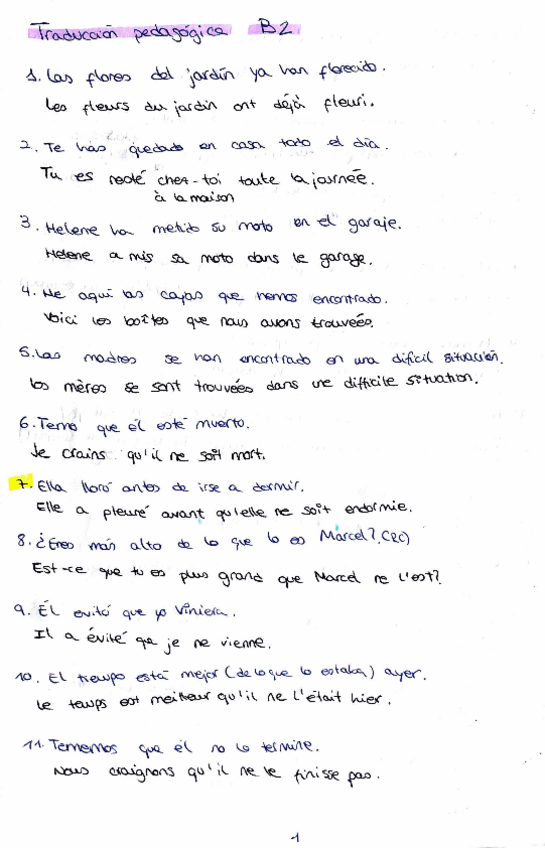 Traducción pedagógica B2
1. Las flores del jardín ya han florecido.
Les fleurs du jardin ont déjà fleuri.
2. Te has quedado en casa todo el día.
Tu es resté chez-toi toute la journée.
à la maison
3. Helene ha metido su moto en el garaje.
Helene a mis sa moto dans le garage.
4. He aquí las cajas que hemos encontrado.
Voici les boîtes que nous avons trouvées.
5. Las madres se han encontrado en una difícil situación.
Les mères se sont trouvées dans une difficile situation.
6. Temo que él esté muerto.
Je crains qu'il ne soit mort.
7. Ella lloró antes de irse a dormir.
Elle a pleuré avant qu'elle ne soit endormie.
8. ¿Eres más alto de lo que lo es Marcel? (CRC)
Est-ce que tu es plus grand que Marcel ne l'est?
9. Él evitó que yo viniera.
Il a évité que je ne vienne.
10. El tiempo está mejor (de lo que lo estaba) ayer.
Le temps est meilleur qu'il ne l'était hier.
11. Tememos que él no lo termine.
Nous craignons qu'il ne le finisse pas.
1